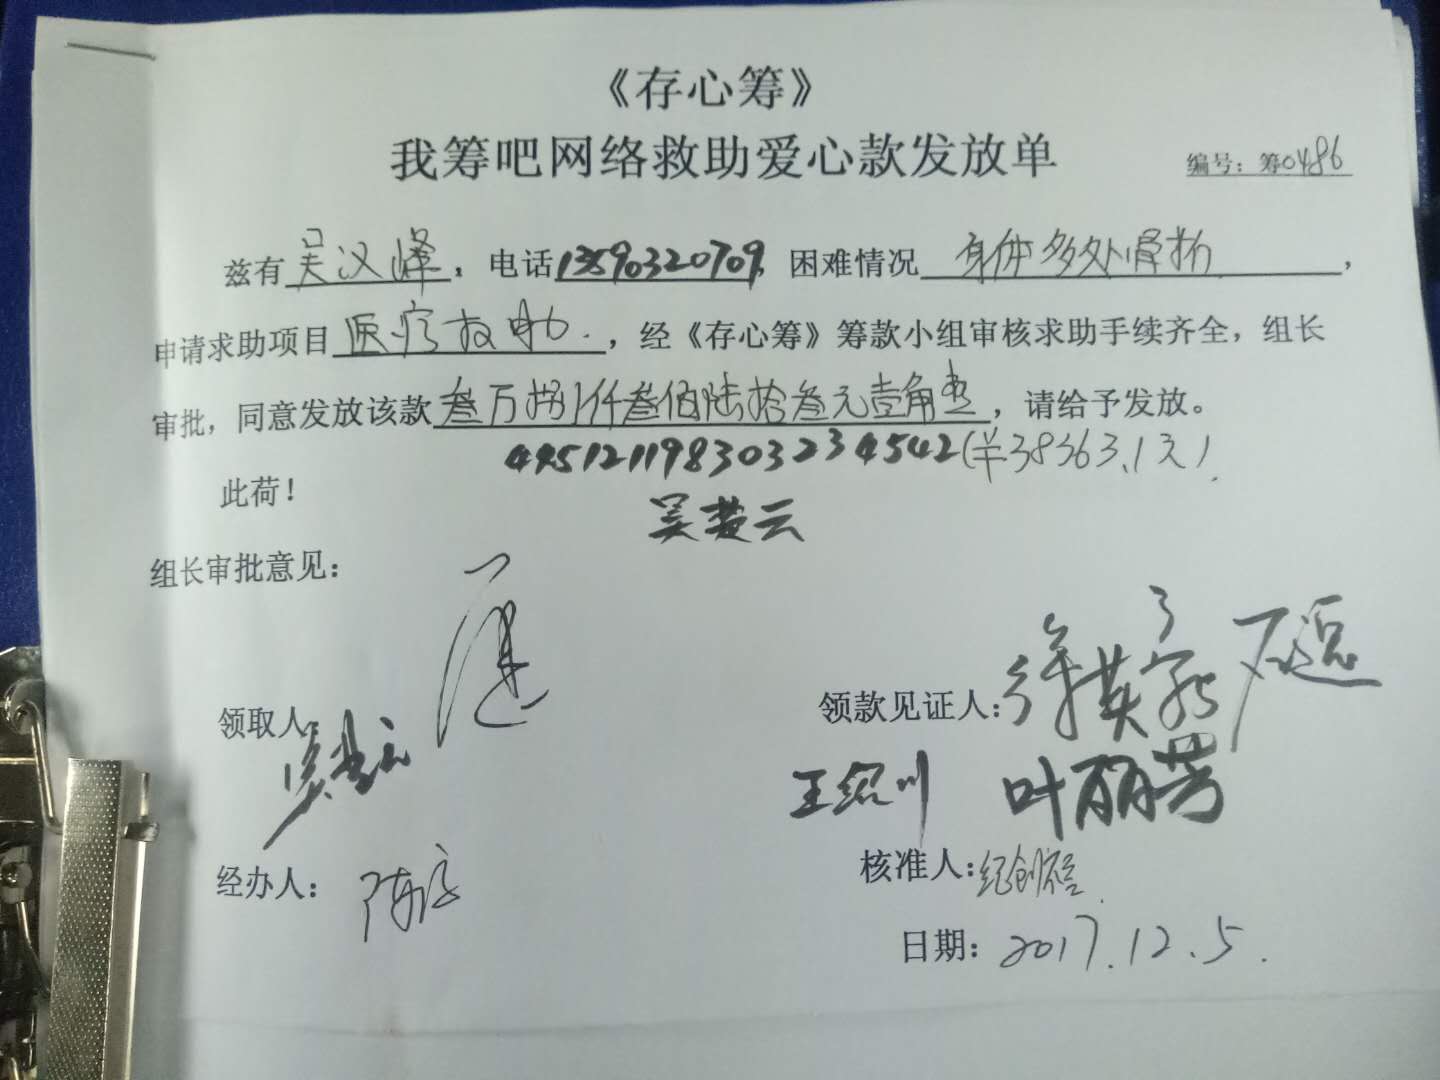 《存心筹》
我筹吧网络救助爱心款发放单
编号：筹0486
兹有吴汉峰，电话13590320709，困难情况身体多处骨折，
申请求助项目医疗救助.，经《存心筹》筹款小组审核求助手续齐全，组长
审批，同意发放该款叁万捌仟叁佰陆拾叁元壹角整，请给予发放。
445121198303234542(￥38363.1元).
此荷！
吴楚云
组长审批意见：
领取人：吴楚云
领款见证人：
王绍川 叶丽芳
经办人：
核准人：
日期：2017.12.5.